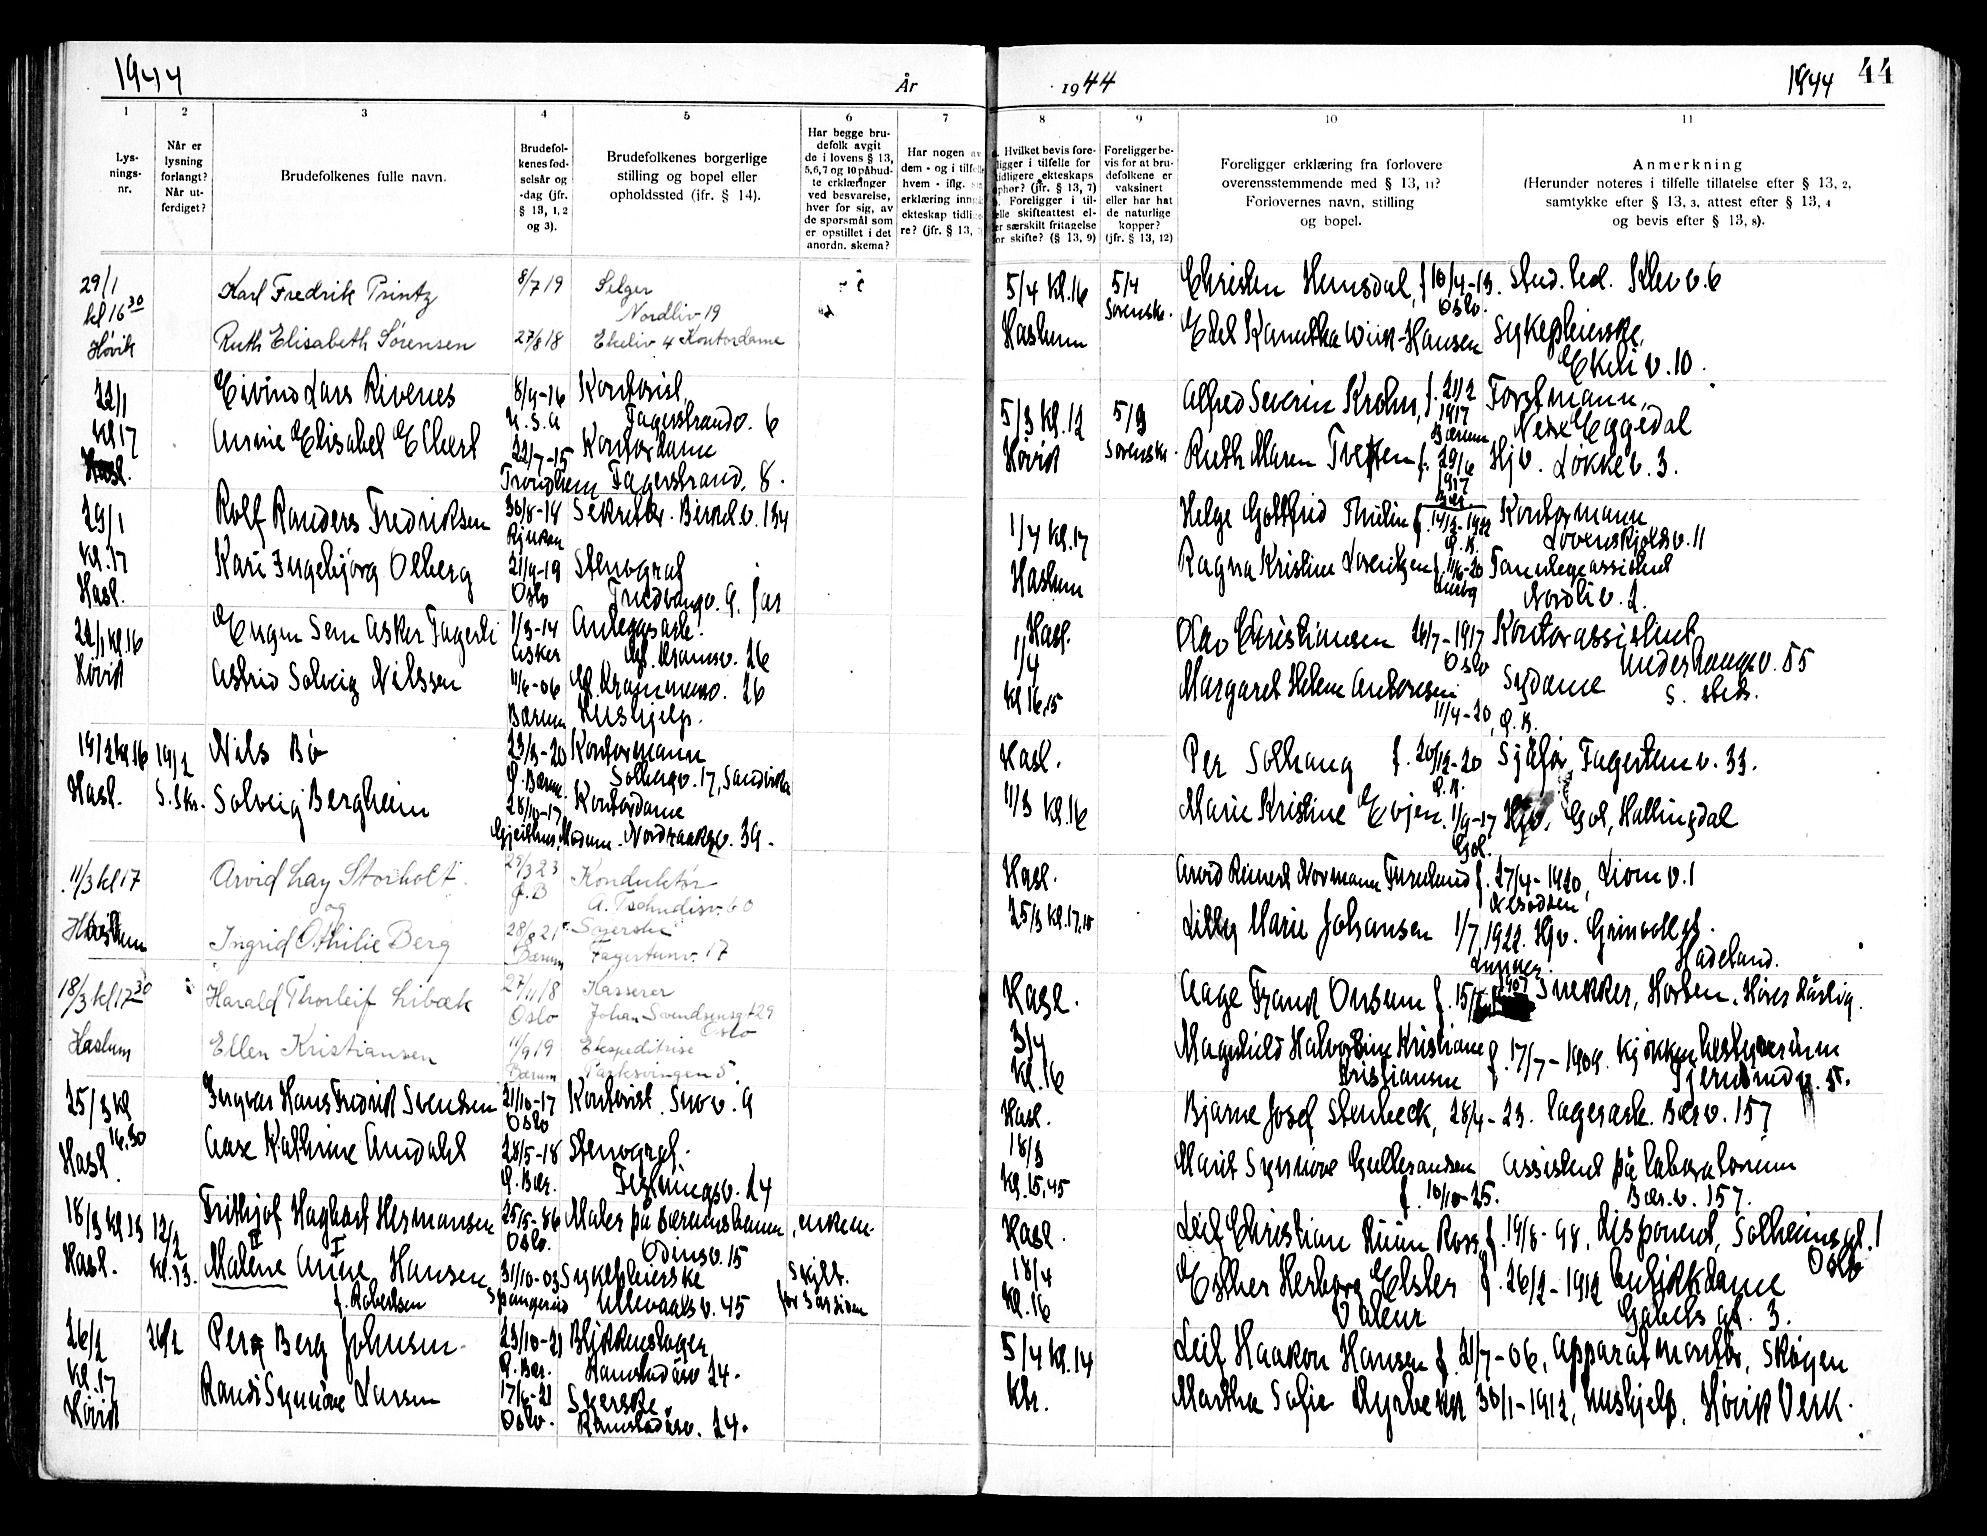 1944
År
1944
1944
44
1
2
3
4
5
6
7
8
9
10
11
Lys-
nings-
nr.
Når er
lysning
forlangt?
Når ut-
ferdiget?
Brudefolkenes fulle navn.
Brudefol-
kenes fød-
selsår og
-dag (jfr.
§ 13, 1, 2
og 3).
Brudefolkenes borgerlige
stilling og bopel eller
opholdssted (ifr. § 14).
Har begge bru-
defolk avgit
de i lovens § 13,
5,6,7 og 10 påbud-
te erklæringer
ved besvarelse,
hver for sig, av
de spørsmål som
er opstillet i det
anordn. skema?
Har nogen av
dem - og i tilfelle
hvem - iflg.
erklæring inng
ekteskap tidlig
re? (jfr. § 13,
Hvilket bevis fore-
ligger i tilfelle for
tidligere ekteskaps
ophør? (jfr. § 13, 7)
Foreligger i til-
felle skifteattest el-
er særskilt fritagelse
or skifte? (§ 13, 9)
Foreligger be-
vis for at bru-
defolkene er
vaksinert
eller har hat
de naturlige
kopper?
(jfr. § 13, 12)
Foreligger erklæring fra forlovere
overensstemmende med § 13, 11?
Forlovernes navn, stilling
og bopel.
Anmerkning
(Herunder noteres i tilfelle tillatelse efter § 13, 2,
samtykke efter § 13, 3, attest efter § 13, 4
og bevis efter § 13, 8).
29/1
kl 16 30
Høvik
Karl Fredrik Printz
8/7 19
Selger
Nordliv 19
Ruth Elisabeth Sørensen
27/8 18
Ekeliv 4 Kontordame
22/1
Kl 17
Hasl.
Eivind Lars Rivenes
8/9-16
U.S.A
Kontorist,
Fagerstrandv. 6
Annie Elisabet Eckert
22/7-15
Trondhem
Kontordame
Fagerstrand. 8.
29/1
Kl. 17
Hasl.
Rolf Randers Fredriksen
30/8-14
Rjukan
Sekretær. Bærumsv. 134
Kari Ingebjørg Olberg
21/9-19
Oslo
Stenograf
22/1 Kl. 16
Høvik
Eugen Sem Asker Fagerli
1/3-14
Asker
Anleggsarb.
Astrid Solveig Nilssen
11/6-06
Bærum
Hushjelp.
19/2 Kl 16
Hasl.
19/2
S. Skr.
Nils Bø
23/3-20
Ø. Bærum.
Kontormann
Solbergv. 17, Sandvika
Solveig Bergheim
28/10-17
Kontordame
Nordraaksv. 39.
11/3 kl 17
Haslum
Arvid Lay Storholt
og
29/3 23
Ø.B
Konduktør
A. Tschudisv. 60
Ingrid Othilie Berg
28/8 21
Bærum
Syerske
Fagertunv. 17
18/3 kl 17 30
Haslum
Harald Thorleif Libæk
27/11 18
Oslo
Kasserer
Johan Svendsensgt 29
Oslo
Ellen Kristiansen
11/9 19
Bærum
Ekspeditrise
Parksvingen 5
25/3 kl
16.30
Hasl.
Ingvar Hans Fredrik Svendsen
21/10-17
Oslo
Kontorist. Snov. 9
Aase Kathrine Amdahl
28/5-18
Ø. Bær.
Stenograf.
18/3 Kl 13
Hasl.
12/2
Kl. 13.
Frithjof Hagbart Hermansen
25/5-86
Oslo.
Maler på Bærumsbanen,
Odinsv. 15
enkem.
Malene Anne Hansen
f. Robertsen
31/10-03
Sykepleierske
Ullevaalsv. 45
Skilt.
26/2
Kl. 17
Høvik
26/2
Per Berg Johnsen
23/10-21
Ø. Bær.
Blikkenslager,
Ramstadåsv 24.
Randi Synnøve Larsen
17/6-21
Oslo.
Syerske
Ramstadåsv. 24.
5/4 Kl. 16
Haslum
5/4
Sorenskr.
Christen Heimsdal, f 10/4-13.
Oslo.
stud. ted. Klev v. 6
Edel Kanutha Wiik-Hansen
Sykepleierske,
Ekeli v. 10.
5/3 Kl. 12
Høvik
5/3
Sorenskr.
Alfred Severin Krohn, f. 21/2
1917
Bærum
Forstmann,
Nere Eggedal
Ruth Maren Tretten f. 29/6
1917
Bær
Hjv. Løkkev. 3.
1/4 Kl. 17
Haslum
Helge Gottfred Thulin f. 14/3-1922
Ø.B.
Kontormann
Løvenskjoldsv. 11
Ragna Kristine Lorentzen f. 11/6-20
Tannlegeassistent
Nordliv. 2.
Hasl.
1/4
Kl 16,15
Olav Christiansen 26/7-1917
Oslo
Kontorassistent
Underhaugsv. 55
Margaret Helene Andresen
11/4-20, Ø.B.
Sydame
S. sted.
Hasl.
11/3 Kl. 16
Per Solhaug f. 20/12-20
Ø.B.
Sjåfør, Fagertunv. 33.
Marie Kristine Evjen. 1/9-17
Gol.
Hjv, Gol, Hallingdal
Hasl.
25/3 Kl. 17,15
Arvid Reinert Normann Tureland f. 27/4-1920,
Liom v. 1
Lilly Marie Johansen 1/7 1922.
Lunner.
Hjv. Grinvoll st.
Hadeland.
Hasl.
3/4
Kl. 16
Aage Frank Onsum f. 15/
1907
Snekker, Horten.
Magnhild Halvorline Kristiane
Kristiansen
f. 17/7-1909. Kjøkkenbestyrerinne
Hasl.
18/3
Kl. 15,45
Bjarne Josef Stenbeck, 28/4-23. Lagerarb. Bærv. 157
Marit Synnøve Gulbrandsen
f. 10/10-25.
Assistent på laboratorium
Bær. v. 157.
Hasl.
18/4
Kl. 16
Leif Christian Riim Ross f. 19/8-98, disponent, Solheimsgt. 1
Oslo
Esther Herborg Elster
Valeur
f. 26/2-1912 butikkdame
Gabels gt. 3.
5/4 Kl. 14
Khr.
Leif Haakon Hansen f. 21/7-06, apparatmontør, Skøyen
Martha Sofie Myrbekk 30/1-1912, hushjelp, Høvik Verk.